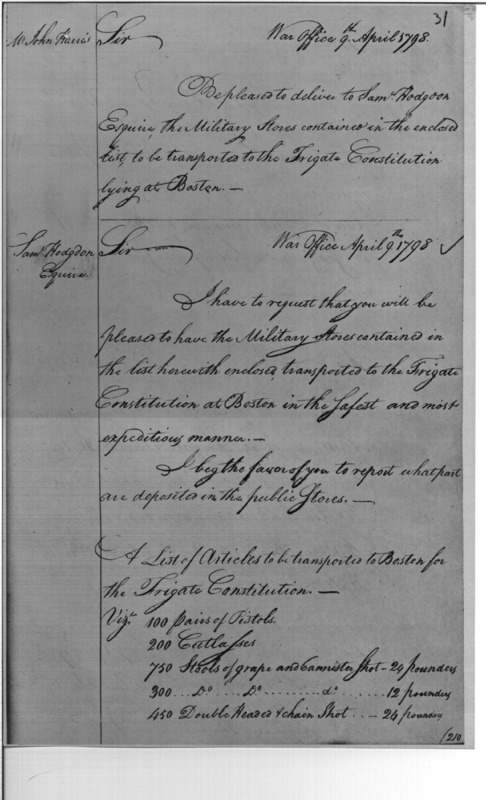 31
Mr. John Harris
Sir War Office 9th April 1798.
Be pleased to deliver to Saml. Hodgdon
Esquire, the Military Stores contained in the enclosed
list, to be transported to the Frigate Constitution
lying at Boston.—
Saml. Hodgdon
Esquire.
Sir War Office April 9th 1798 ✓
I have to request that you will be
pleased to have the Military Stores contained in
the list herewith enclosed, transported to the Frigate
Constitution at Boston in the safest and most
expeditious manner.—
I beg the favor of you to report what part
are deposited in the public Stores.—
A List of Articles to be transported to Boston for
the Frigate Constitution.—
Vizt. 100 pairs of Pistols.
200 Cutlasses
750 Stools of grape and cannister Shot - 24 pounders
300 ... Do ... Do ......... do ...... 12 pounders
450 Double Headed & chain Shot ... - 24 pounders
/210